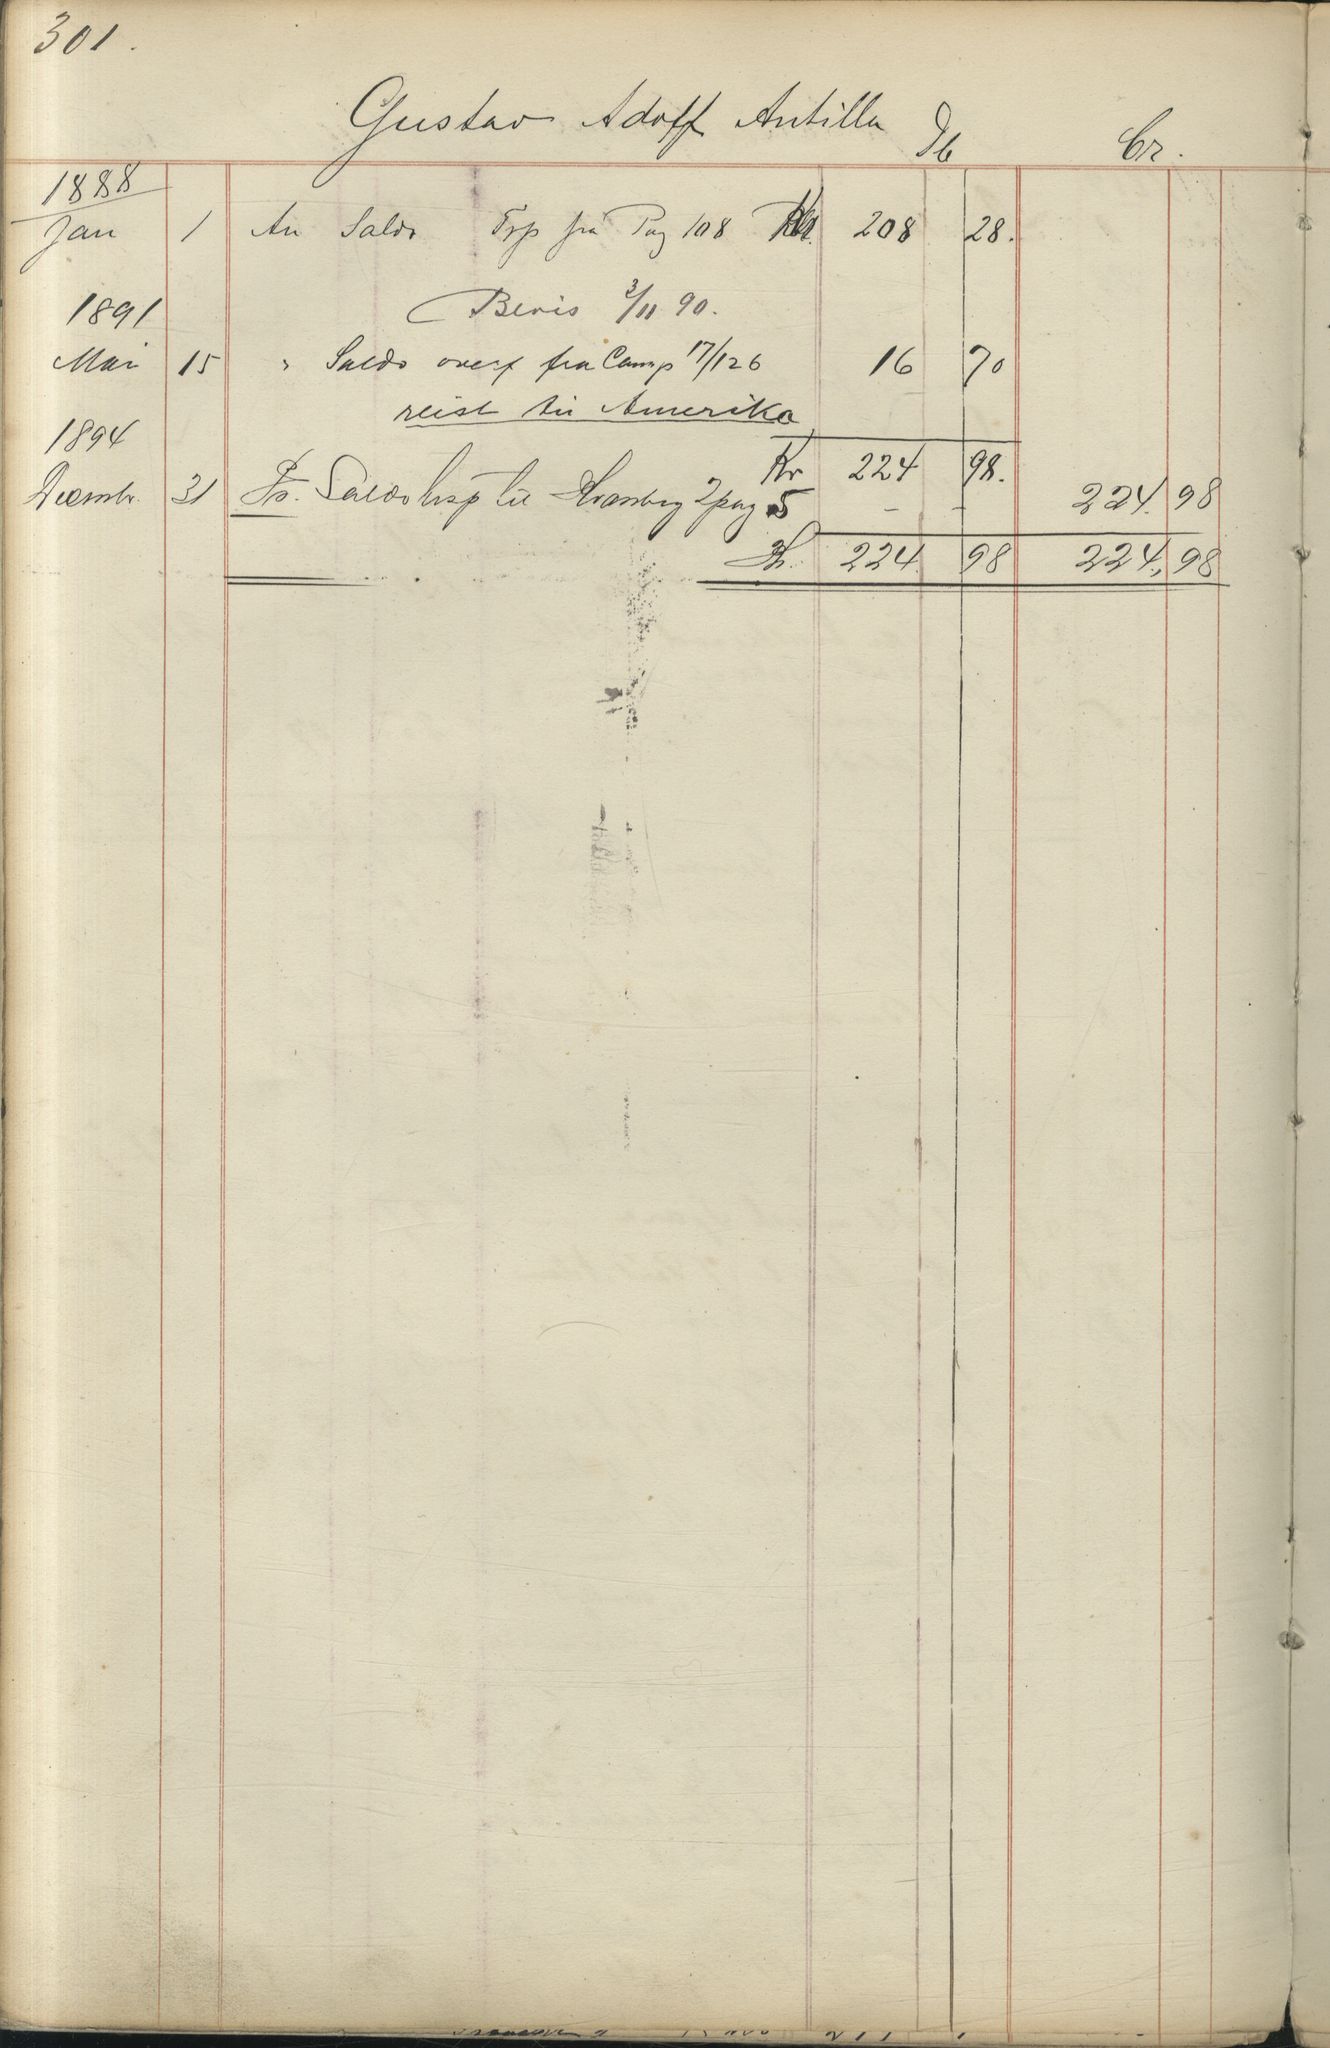 301.
Gustav Adolf Antilla Db Cr.
1888
Jan 1 An Saldo Trp fra Pag 108 Kr. 208 28.
1891 Bevis 3/11 90.
Mai 15 " Saldo overf fra Camp 17/126 16 70
reist til Amerika
1894 Kr 224 98.
Decembr. 31 Pr. Saldo trsp til 2 pag 5 - - 224 98
Kr. 224 98 224,98